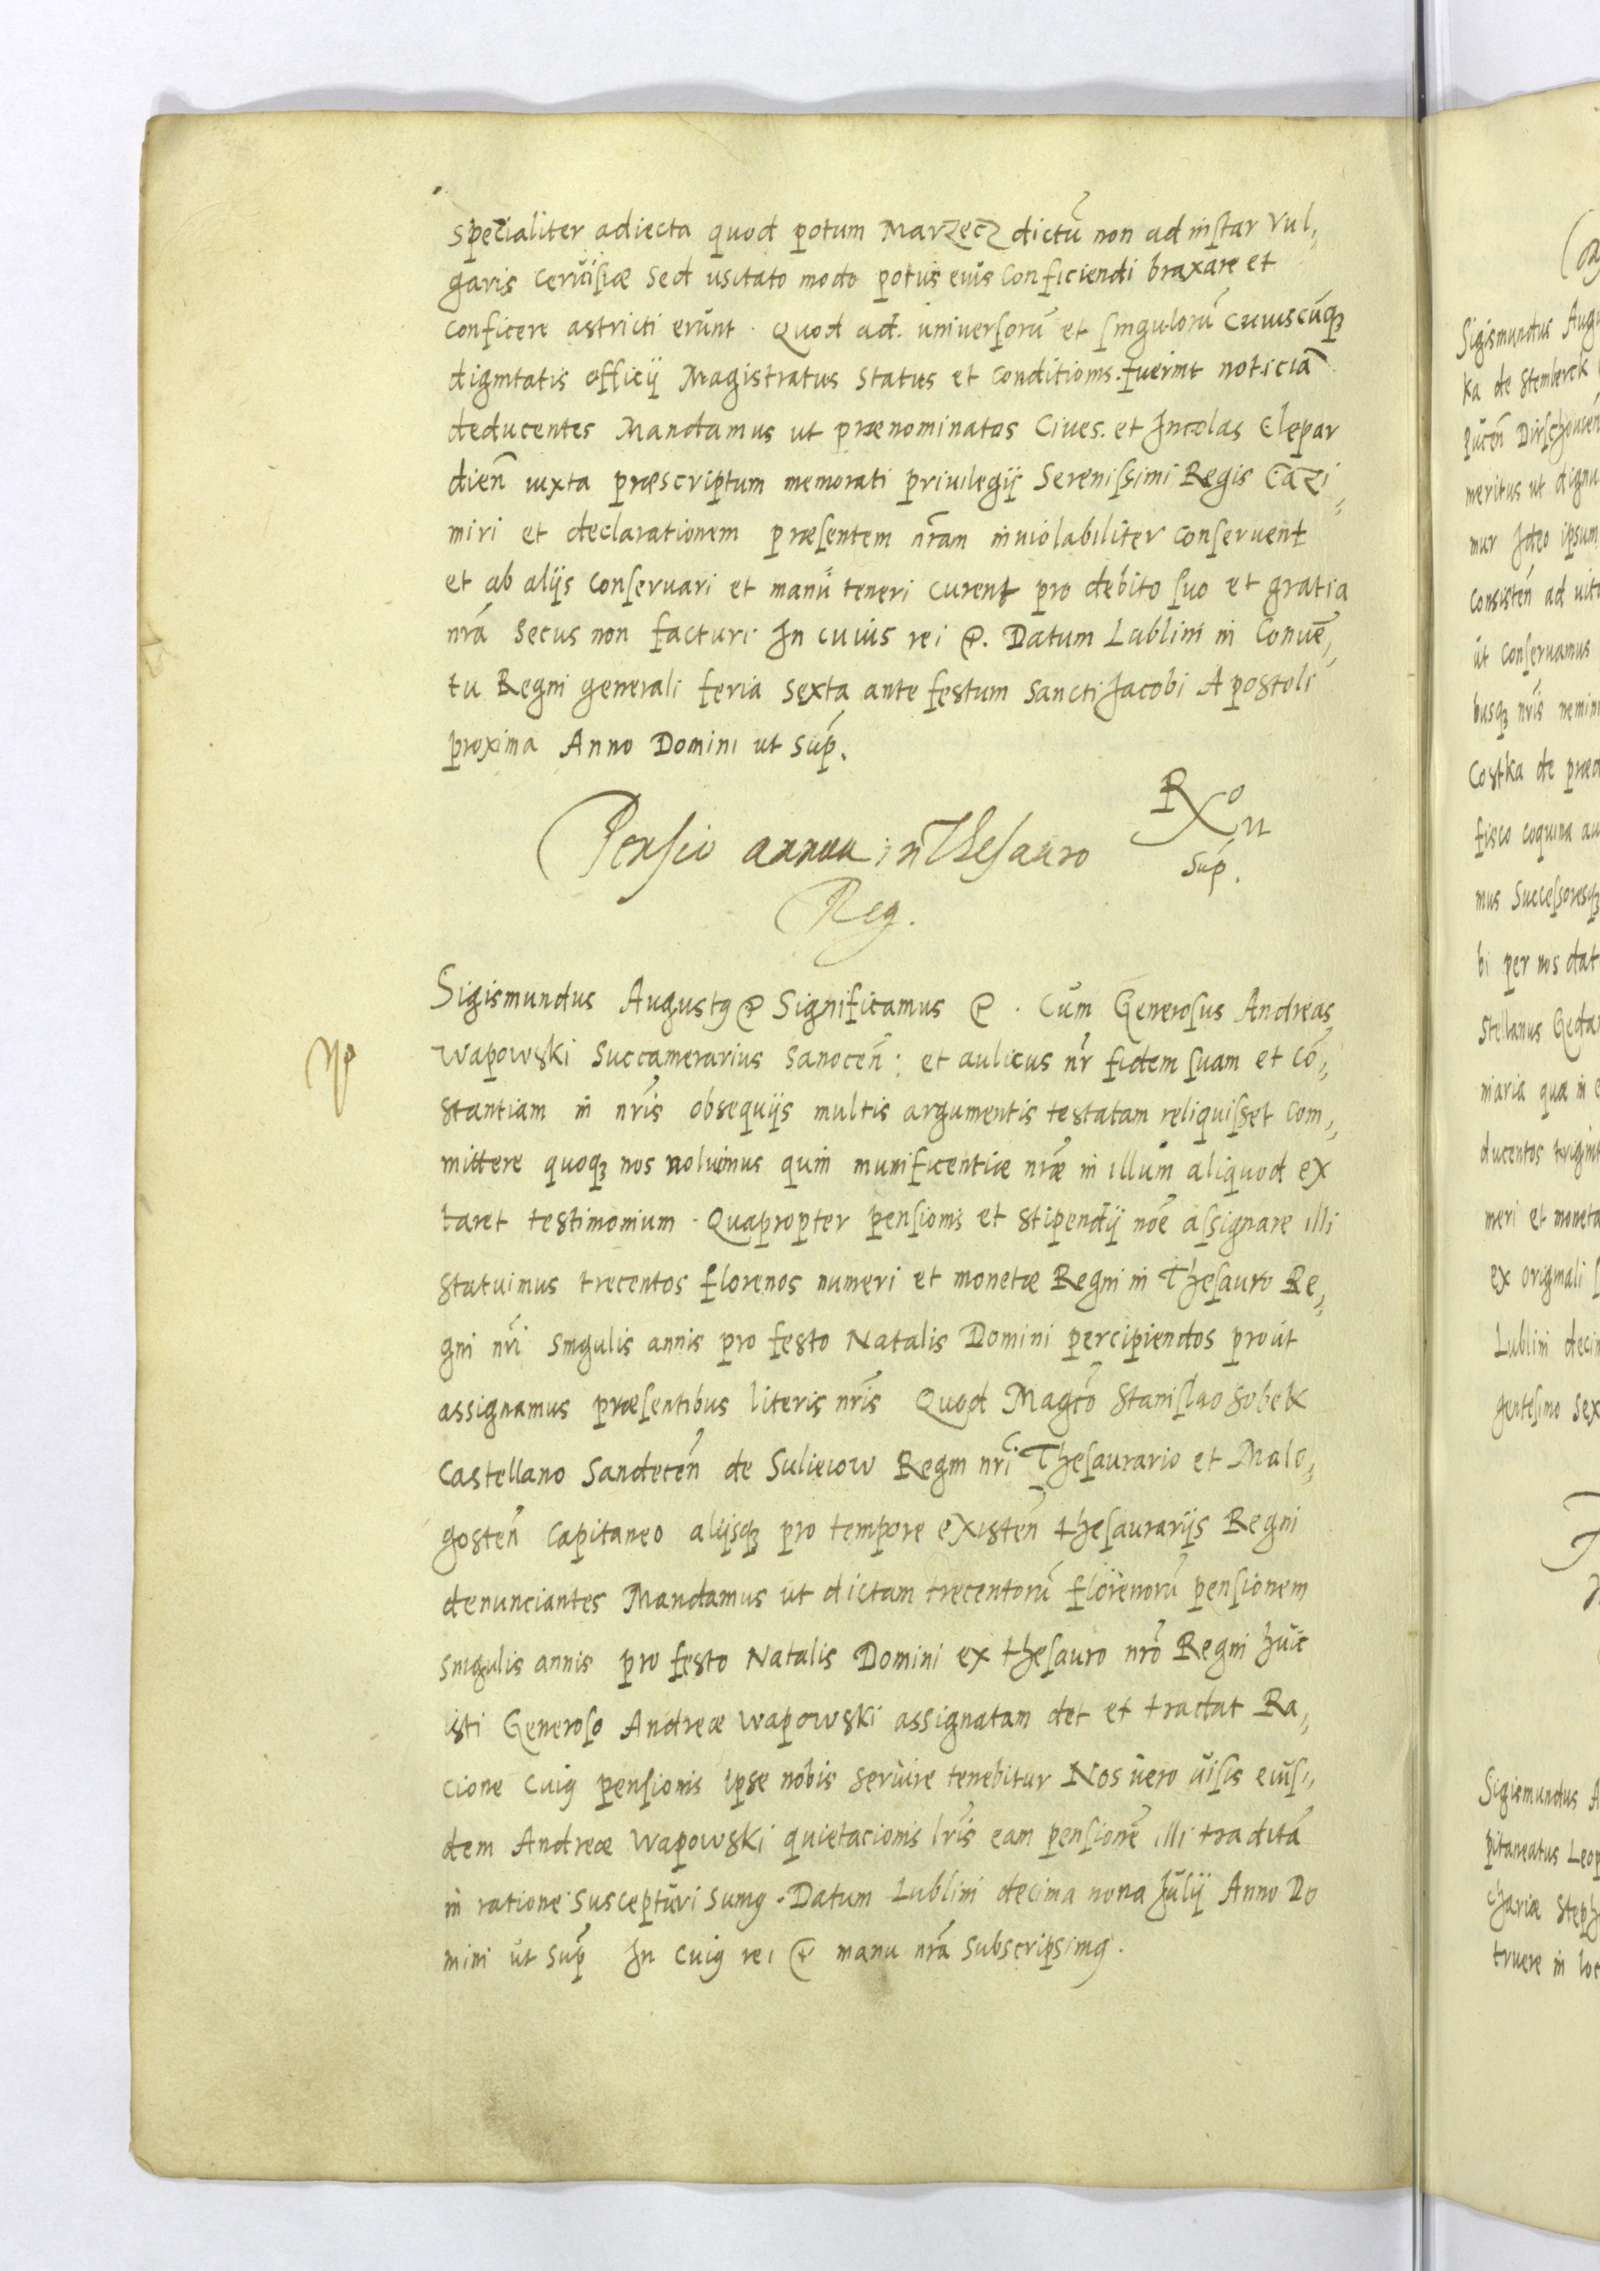 specialiter adiecta quod potum Marzecz dictũ non ad instar Vul,,
garis cervisiæ sed usitato modo potus eius Conficiendi braxare et
conficere astricti erunt. Quod ad. universorũ et singulorũ Cuiuscũq3
dignitatis officij Magistratus Status et Conditionis. fuerint noticiã
deducentes Mandamus ut prænominatos Ciues. et Incolas Clepar
dieñ iuxta præscriptum memorati priuilegij Serenissimi Regis Cazi,,
miri et declarationem præsentem nr̃am inuiolabiliter conseruent
et ab alijs conseruari et manũ teneri curent pro debito suo et gratia
nrã Secus non facturi In cuius rei &. Datum Lublini in Conuẽ,,
tu Regni generali feria sexta ante festum Sancti Jacobi Apostoli
proxima Anno Domini ut sup̃.
Pensio annua in Thesauro
Rx o ut
sup̃.
Reg.
Sigismundus Augustꝯ & Significamus &. Cum Generosus Andreas
Wapowski Succamerarius Sanoceñ: et aulicus nr̃ fidem suam et Cõ,,
stantiam in nr̃is obsequijs multis argumentis testatam reliquisset Com,,
mittere quoq3 nos noluimus quin munificentiæ nr̃æ in illum aliquod ex
taret testimonium. Quapropter pensionis et stipendij nõe assignare illi
statuimus trecentos florenos numeri et monetæ Regni in Thesauro Re,,
gni nr̃i singulis annis pro festo Natalis Domini percipiendos prout
assignamus præsentibus literis nr̃is Quod Magcõ Stanislao Sobek
Castellano Sandeceñ de Sulieiow Regni nr̃i Thesaurario et Malo,,
gosteñ Capitaneo alijsq3 pro tempore existeñ thesaurarijs Regni
denunciantes Mandamus ut dictam trecentorũ florenorũ pensionem
singulis annis pro festo Natalis Domini ex thesauro nr̃o Regni huic
isti Generoso Andreæ Wapowski assignatam det et tradat Ra,,
cione cuiꝯ pensionis ipse nobis seruire tenebitur Nos uero uisis eius,,
dem Andreæ Wapowski quietacionis lr̃is eam pensionẽ illi traditã
in ratione suscepturi sumꝯ. Datum Lublini decima nona Julij Anno Do
mini ut sup̃ In cuiꝯ rei & manu nr̃a subscripsimꝯ.